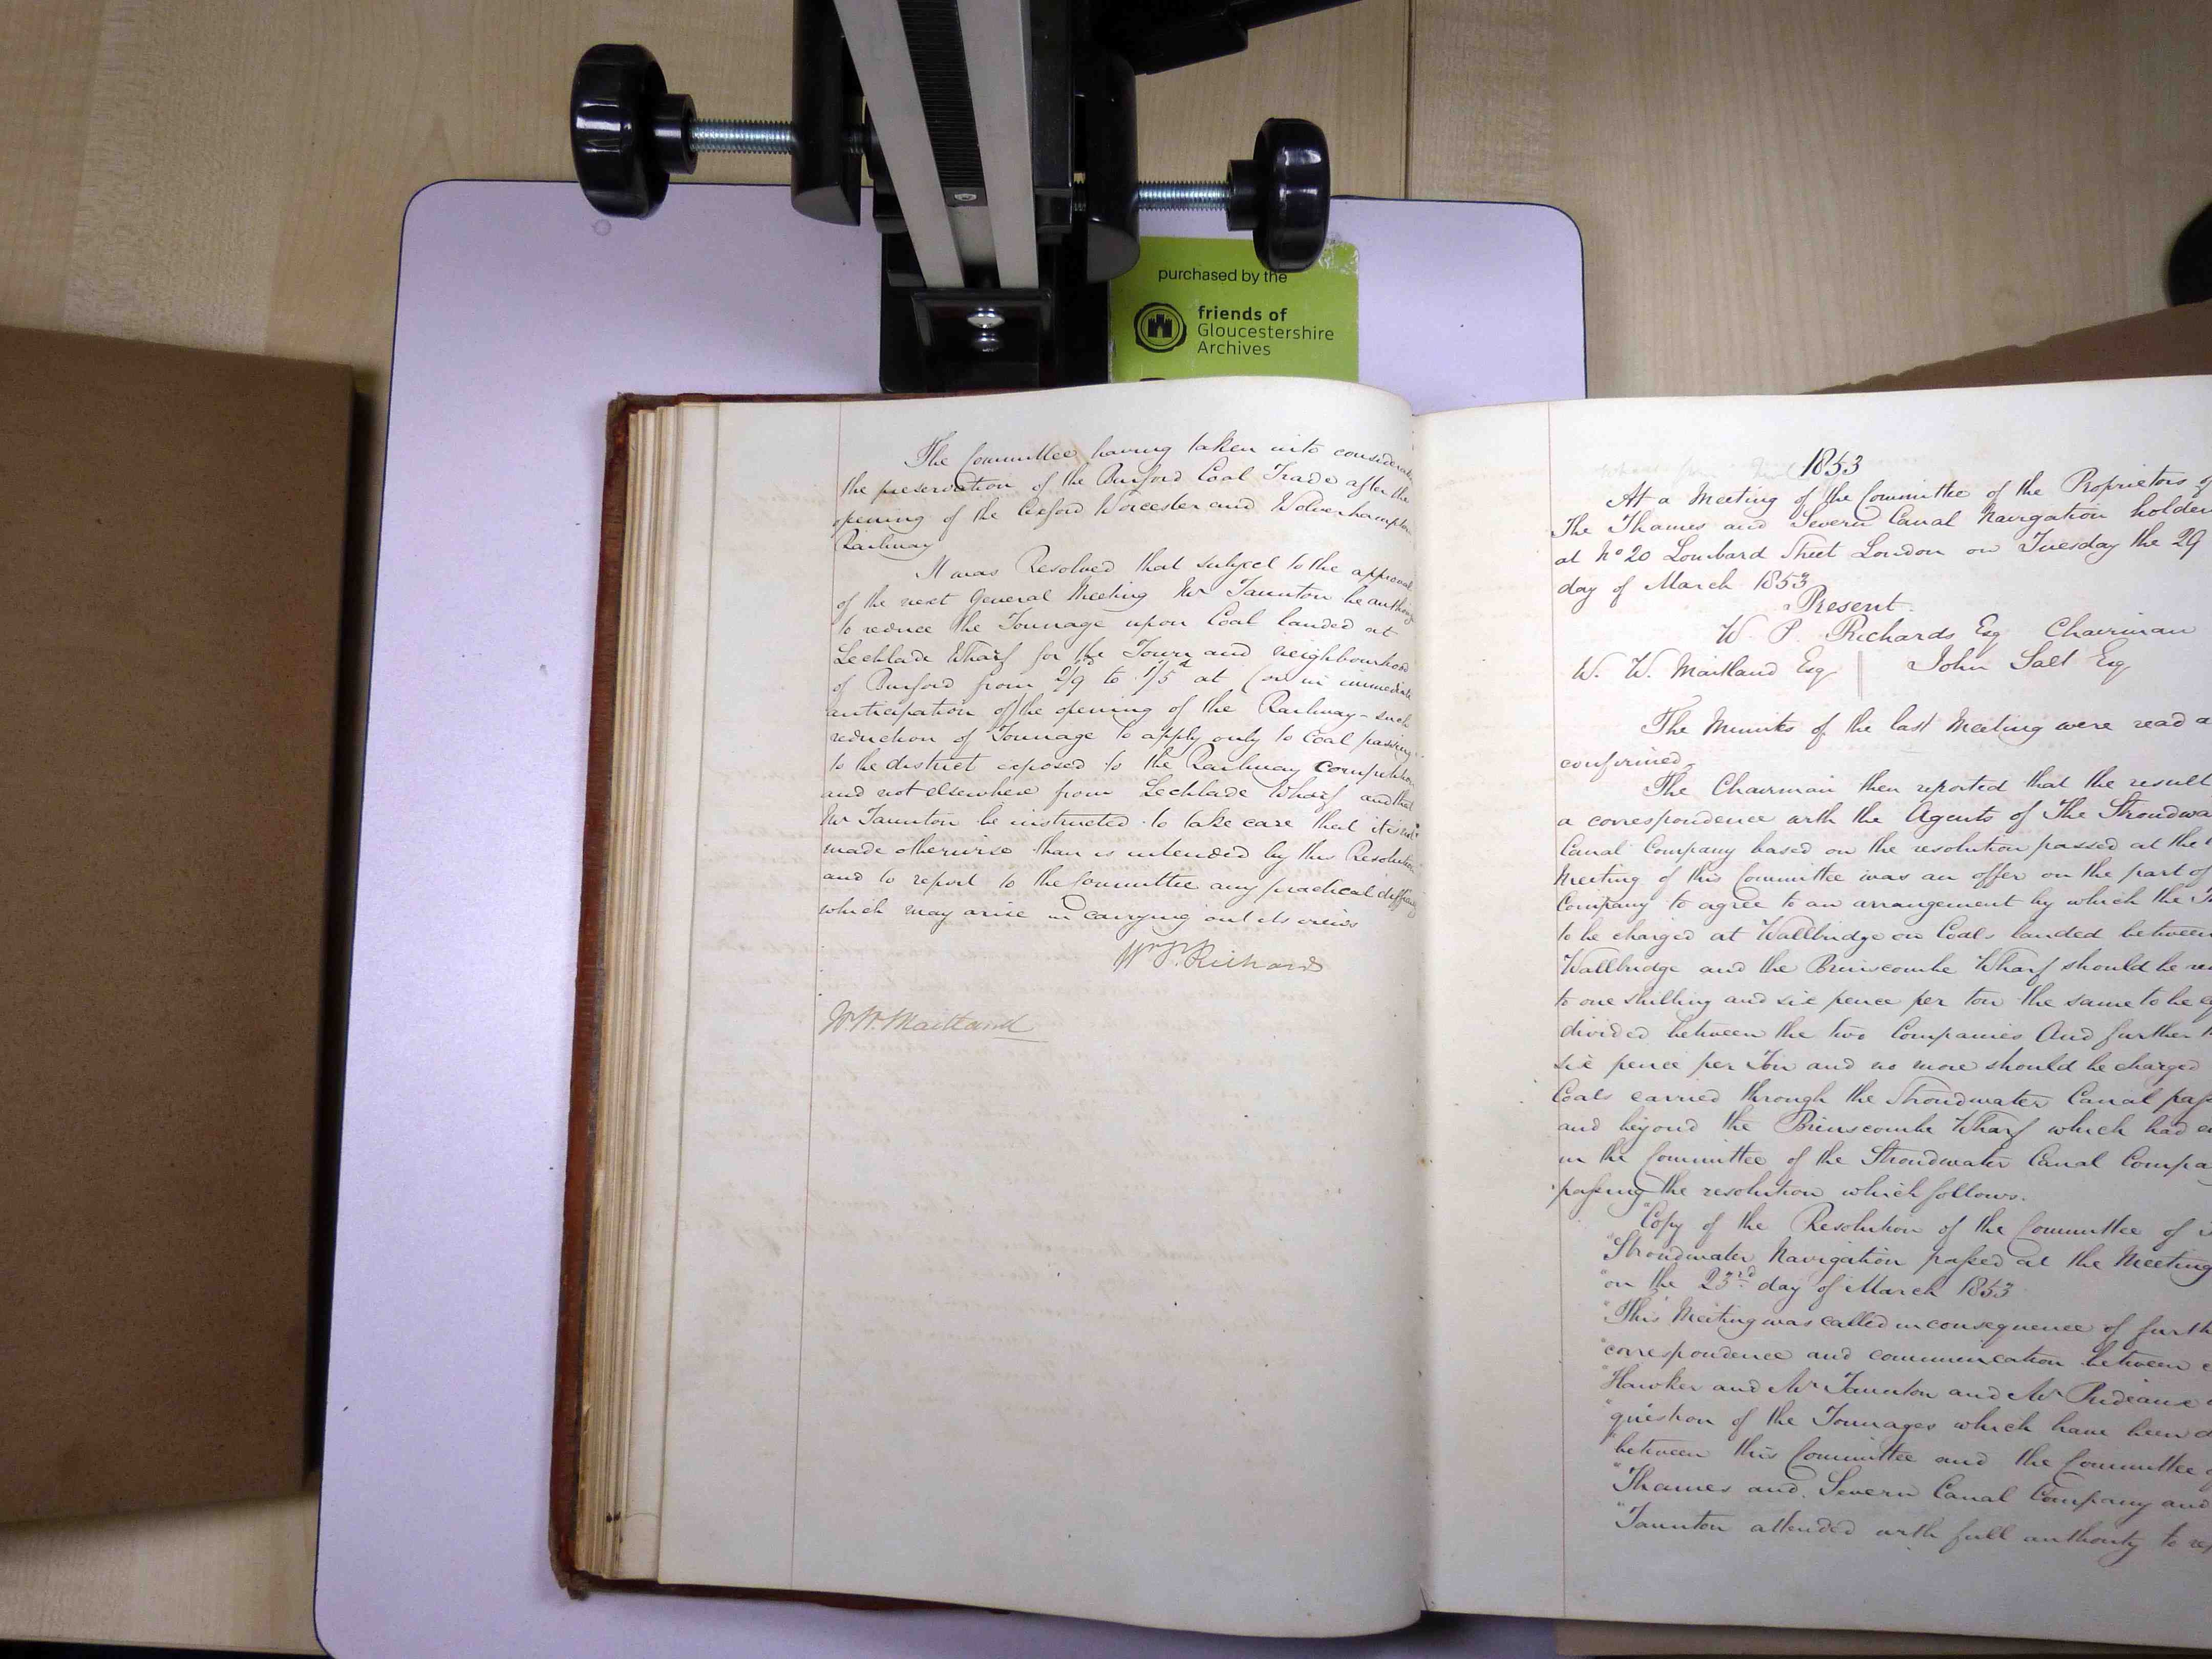 purchased by the
friends of
Gloucestershire
Archives
The Committee having taken into considerat
the preservation of the Burford Coal Trade after the
opening of the Oxford Worcester and Wolverhampton
Railway
It was Resolved that subject to the approval
of the next General Meeting Mr Taunton be author
to reduce the Tonnage upon Coal landed at
Lechlade Wharf for the Town and neighbourhood
of Burford from 2/9 to 1/5d at (or in immediate
anticipation of) the opening of the Railway - such
reduction of Tonnage to apply only to Coal passing
to the district exposed to the Railway Competition
and not elsewhere from Lechlade Wharf and that
Mr Taunton be instructed to take care that it is not
made otherwise than is intended by this Resolution
and to report to the Committee any practical difficulty
which may arise in carrying out its views
Wm P. Richards
W. W. Maitland
1853
At a Meeting of the Committee of the Proprietors of
The Thames and Severn Canal Navigation holden
at No 20 Lombard Street London on Tuesday the 29
day of March 1853
Present.
W. P. Richards Esq Chairman
W. W. Maitland Esq John Salt Esq
The Minutes of the last Meeting were read a
confirmed
The Chairman then reported that the result
a correspondence with the Agents of The Stroudwa
Canal Company based on the resolution passed at the
Meeting of this Committee was an offer on the part of
Company to agree to an arrangement by which the
to be charged at Wallbridge on Coals landed between
Wallbridge and the Brimscombe Wharf should be re
to one shilling and six pence per ton the same to be eq
divided between the two Companies And further
six pence per Ton and no more should be charged
Coals carried through the Stroudwater Canal pass
and beyond the Brimscombe Wharf which had e
in the Committee of the Stroudwater Canal Compa
passing the resolution which follows.
"Copy of the Resolution of the Committee of
"Stroudwater Navigation passed at the Meeting
"on the 23rd day of March 1853
"This Meeting was called in consequence of furth
"correspondence and communication between
"Hawker and Mr Taunton and Mr Prideaux
"question of the Tonnages which have been d
"between this Committee and the Committee of
"Thames and Severn Canal Company and
"Taunton attended with full authority to rep